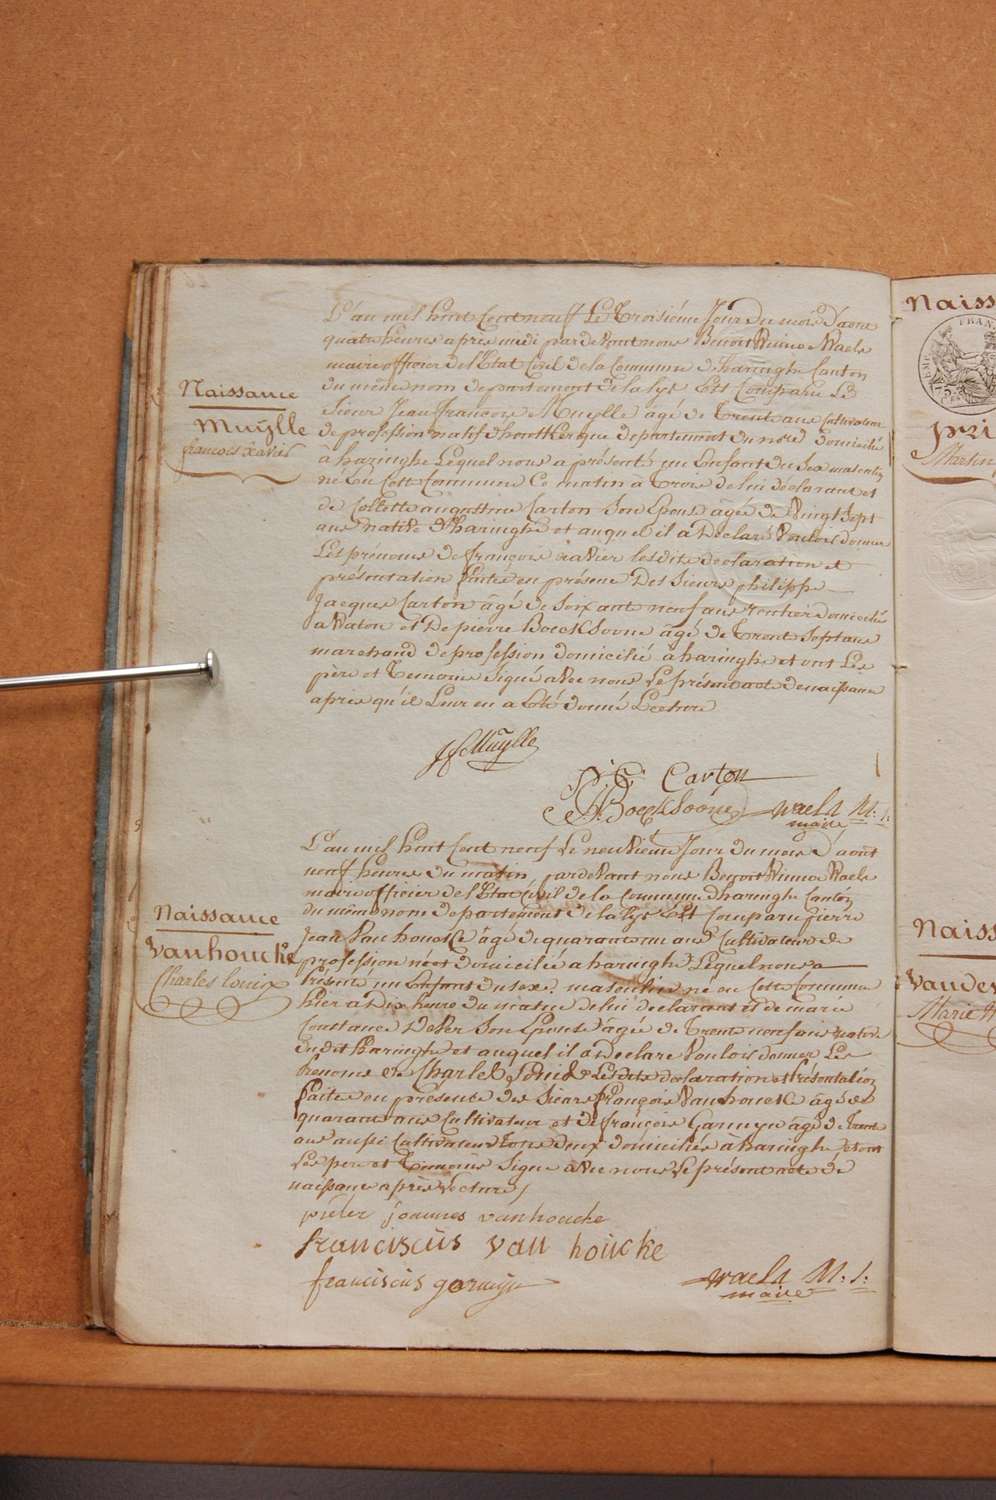 L'an mil huit Cent neuf Le Troisiéme Jour du mois D'aout
quatre heures apres midi pardeVant nous Benoit Winnoc Waels
maire officier de l'Etat Civil de la Commune d'haringhe Canton
du même nom departement de la Lys Est Comparu Le
Naissance
Muÿlle
francois Xavier
Sieur Jean francois Muylle agé de Trente ans Cultivateur
de profession natif d'hontkerque departement du nord domicilié
à haringhe Lequel nous a présenté un Enfant du Sex masculin
né En Cette Commune Ce matin à Trois de lui déclarant et
de Collette augustine Carton Son Epouse âgée de Vingt Sept
ans native d'haringhe et auquel il a Déclaré Vouloir donner
Les prénoms de françois xavier lesdite declaration et
présentation faite en présence Des Sieurs philippe
Jacques Carton âgé de Soixante neuf ans rentier domicilié
a Waton et De pierre BoeckSoone âgé de Trente Sept ans
marchand de profession domicilié à haringhe et ont Les
père et Temoins Signé avec nous Le présent acte de naissance
apres qu'il Leur en a Eté donné Lecture
JF Muÿlle
P: J: Carton
P: BoeckSoone
waels M. f.
maire
L'an mil huit Cent neuf Le neuVieme Jour du mois D'aout
neuf heures du matin pardeVant nous Benoit Winnoc Waels
maire officier de l'Etat Civil de la Commune d'haringhe Canton
du même nom departement de la Lys Est Comparu pierre
Naissance
Vanhoucke
Charles Louis
Jean Van houcke âgé de quarante un ans Cultivateur de
profession né et domicilié a haringhe Lequel nous a
Présenté un Enfant du sexe masculin né en Cette Commune
hier a Dix heure du matin de lui declarant et de marie
Constance DeKer Son Epouse agée de Trente neuf ans native
dudit Haringhe et auquel il a declaré Vouloir donner Les
Prenoms de Charles Louis Lesdite declaration et Présentation
faite en présence des Sieurs françois Vanhoucke âgé de
quarante ans Cultivateur et de françois Garmyn âgé de Trente
ans aussi Cultivateur Tous deux domiciliés à haringhe et ont
Les pere et Temoins Signé avec nous Le présent acte de
naissance après Lecture
pieter joannes vanhoucke
franciscüs van hoücke
franciscüs garmijn
waels M. f:
maire
Naiss
FRAN
pri
Martin
Naiss
Vandev
Marie